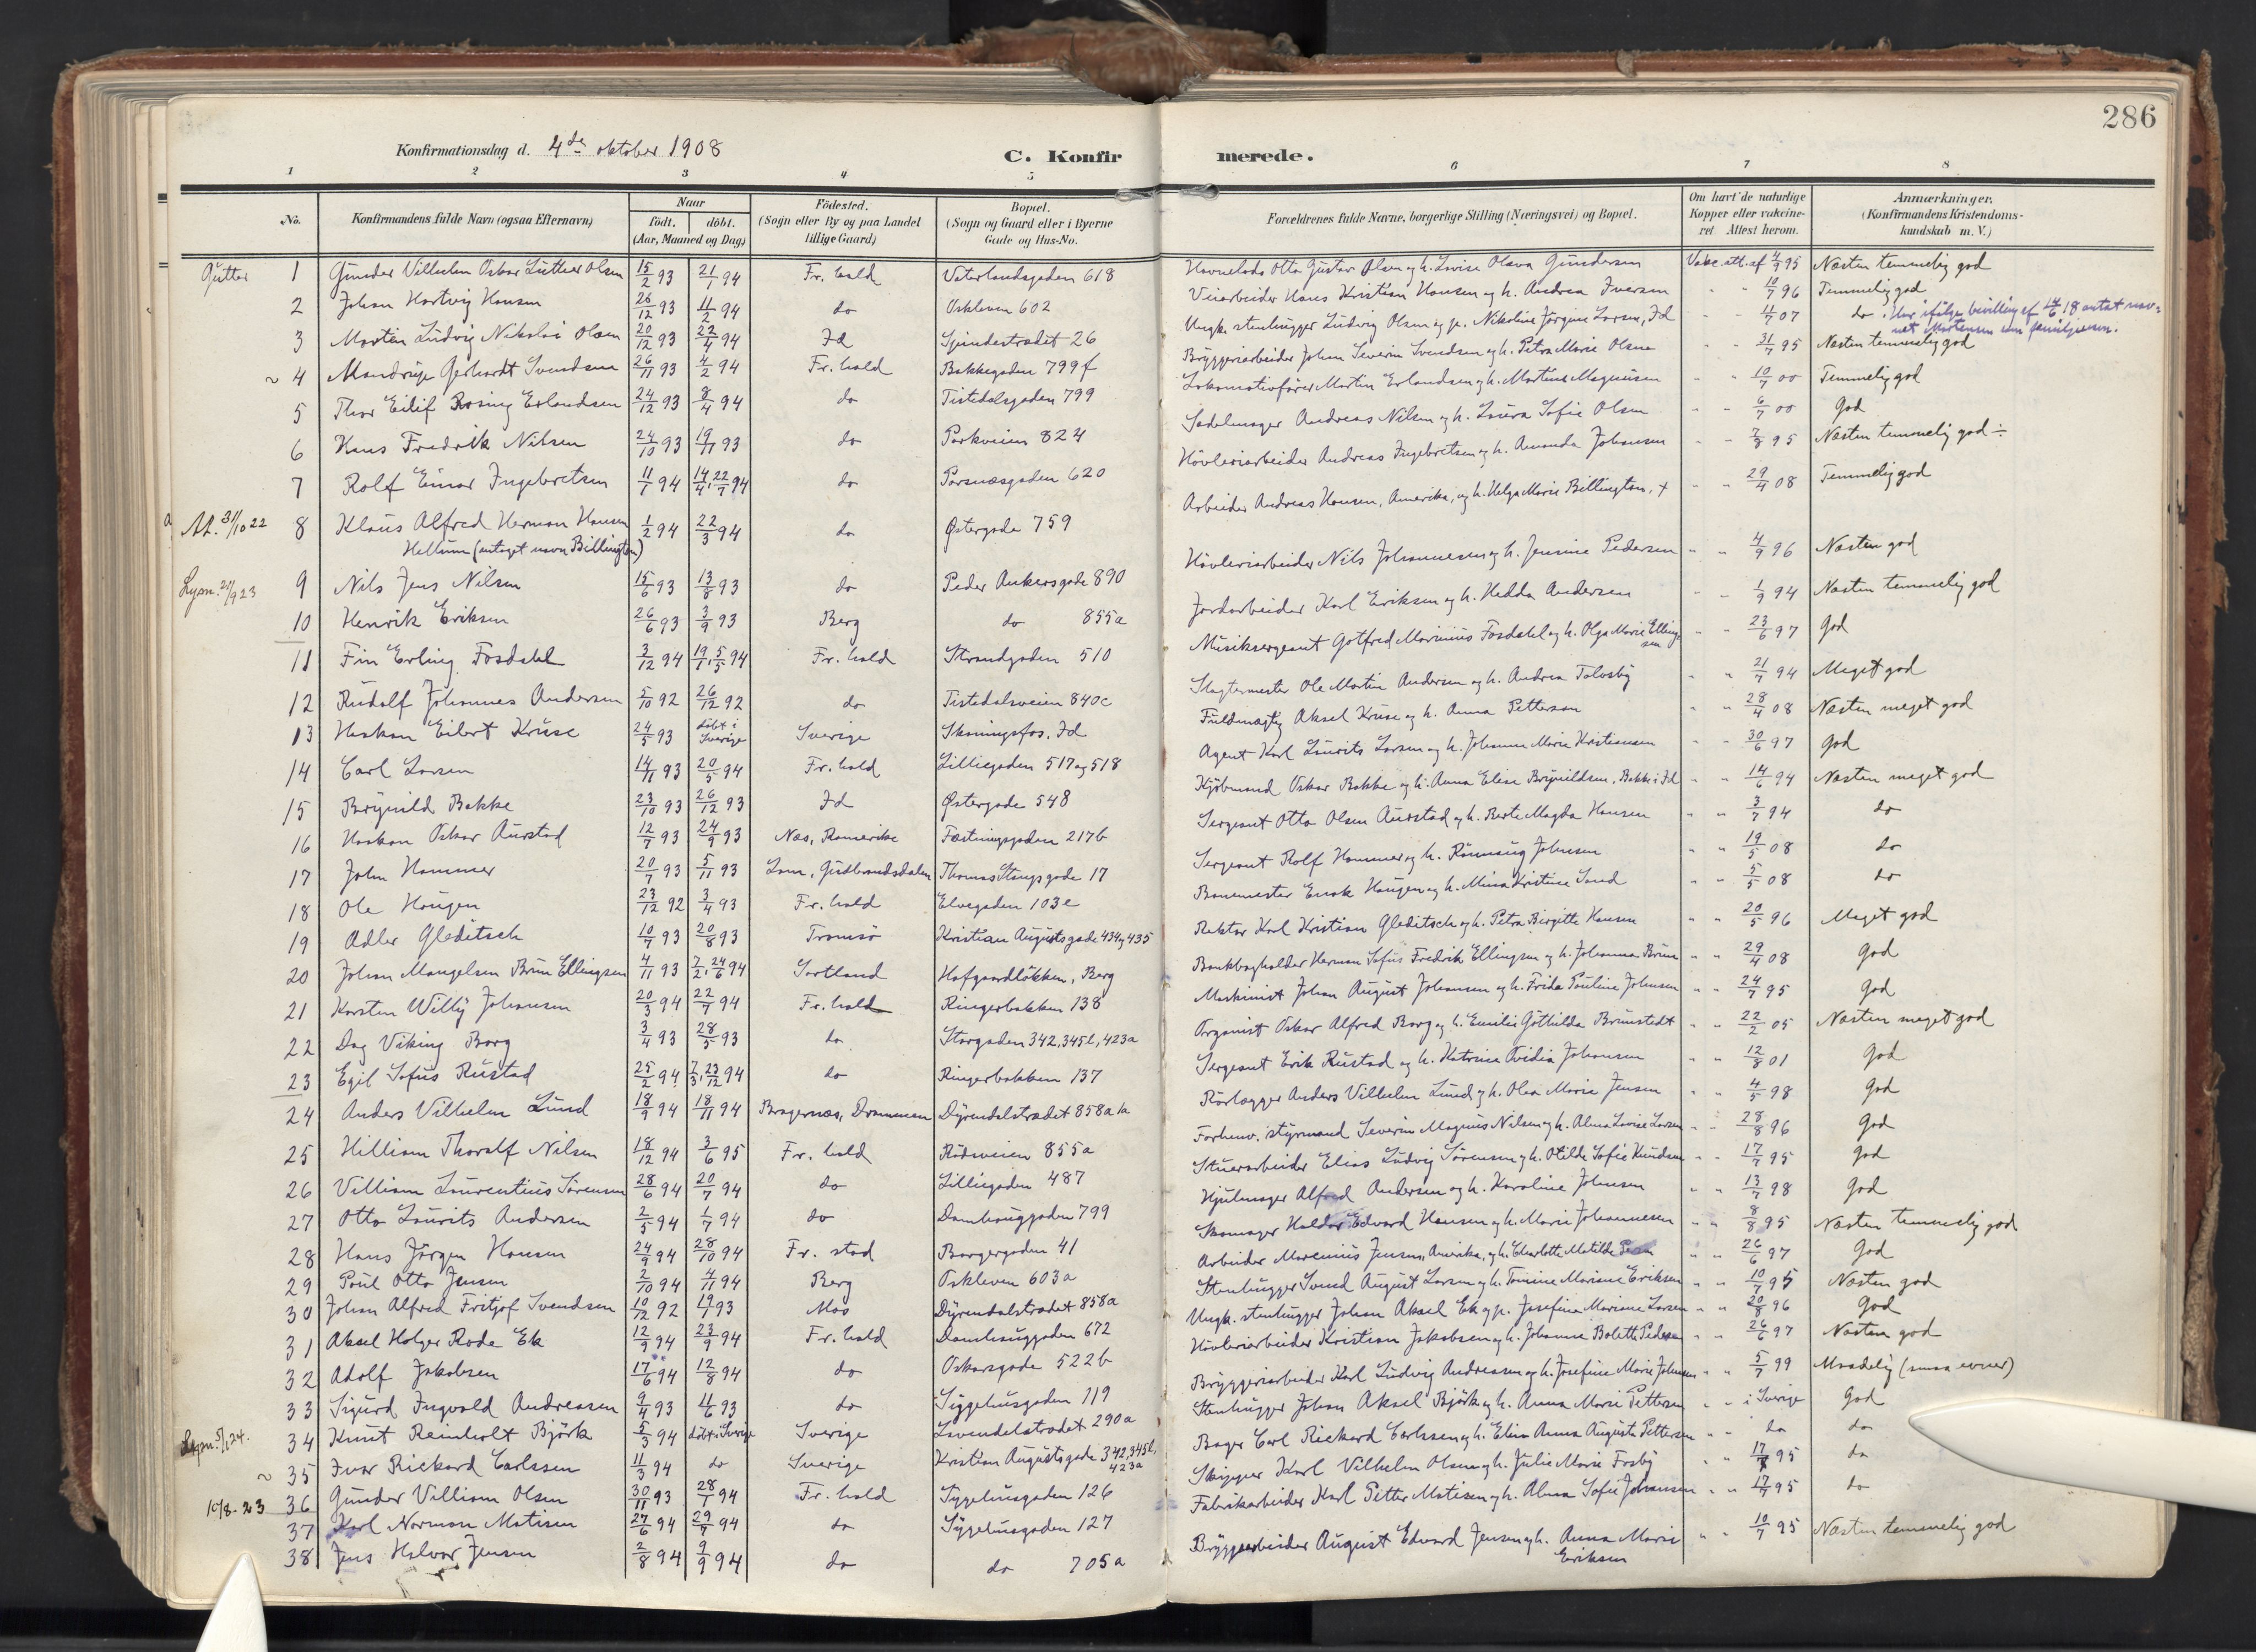 286
Konfirmationsdag d. 4de oktober 1908
C. Konfirmerede.
1 2 3 4 5 6 7 8
No. Konfirmandens fulde Navn (ogsaa Efternavn) Naar født. døbt. (Aar, Maaned og Dag) Födested. (Sogn eller By og paa Landet tillige Gaard) Bopæl. (Sogn og Gaard eller i Byerne Gade og Hus-No. Forældrenes fulde Navne, borgerlige Stilling (Næringsvei) og Bopæl. Om havt de naturlige Kopper eller vakcineret Attest herom. Anmærkninger. (Konfirmandens Kristendomskundskab m. V.)
Gutter 1 Gunder Vilhelm Oskar Luther Olsen 15/2 93 21/1 94 Fr.hald Vaterlandsgaden 618 Havnelods Otto Gustav Olsen og h. Lovise Olava Gundersen Vakc. att. af 4/9 95 Næsten temmelig god
2 Johan Hartvig Hansen 26/12 93 11/2 94 do Oskleven 602 Veiarbeider Hans Kristian Hansen og h. Andrea Iversen " " 10/7 96 Temmelig god
3 Martin Ludvig Nikolai Olsen 20/12 93 22/4 94 Id 26 Ungk. stenhugger Ludvig Olsen og p. Nikoline Jörgine Larsen, Id " " 11/7 07 do. Har ifølge bevilling af 14/6 18 antat navnet Martensen som familjenavn.
~ 4 Mandrup Gerhardt Svendsen 26/11 93 4/2 94 Fr.hald Bakkegaden 799f Bryggeriarbeider Johan Severin Svendsen og h. Petra Marie Olsen " " 31/7 95 Næsten temmelig god
5 Thor Eilif Rosing Erlandsen 24/12 93 8/4 94 do Tistedalsgaden 799 Lokomotivförer Martin Erlandsen og h. Martine Magnusen " " 10/7 00 Temmelig god
6 Hans Fredrik Nilsen 24/10 93 19/11 93 do Parkveien 824 Sadelmager Andreas Nilsen og h. Laura Sofie Olsen " " 6/7 00 God
7 Rolf Einar Ingebretsen 11/1 94 14/4, 22/7 94 do 620 Hövleriarbeider Andreas Ingebretsen og h. Amanda Johansen " " 7/8 95 Næsten temmelig god ÷
Att. 31/10 22 8 Klaus Alfred Herman Hansen 1/2 94 22/3 94 do Østergade 759 Arbeider Andreas Hansen, Amerika, og h. Helga Marie Billington, + " " 29/4 08 Temmelig god
Hellum (antaget navn Billington)
Lysn. 21/9 23 9 Nils Jens Nilsen 15/6 93 13/8 93 do Peder Ankersgade 890 Hövleriarbeider Nils Johannesen og h. Jensine Pedersen " " 4/9 96 Næsten god
10 Henrik Eriksen 26/6 93 3/9 93 Berg do 855a Jordarbeider Karl Eriksen og h. Hedda Andersen " " 1/9 94 Næsten temmelig god
11 Fin Erling Fosdahl 3/12 94 19/1, 5/5 94 Fr.hald Strandgaden 510 Musiksergeant Gotfred Marinius Fosdahl og h. Olga Marie Ellingsen " " 23/6 97 God
12 Rudolf Johannes Andersen 5/10 92 26/12 92 do Tistedalsveien 840c Slagtermester Ole Martin Andersen og h. Andrea Tolvsby " " 21/7 94 Meget god
13 Haakon Eilert Kruse 24/5 93 döbt i Sverige Sverige Skoningsfos, Id Fuldmægtig Aksel Kruse og h. Anna Petterson " " 28/4 08 Næsten meget god
14 Carl Larsen 14/11 93 20/5 94 Fr.hald Lillegaden 517 og 518 Agent Karl Laurits Larsen og h. Johanne Marie Kristiansen " " 30/6 97 God
15 Brynild Bakke 23/10 93 26/12 93 Id Østergade 548 Kjöbmand Oskar Bakke og h. Anna Elise Brynildsen, Bakke i Id " " 14/6 94 Næsten meget god
16 Haakon Oskar Aurstad 12/7 93 24/9 93 Næs, Romerike Fæstningsgaden 217b Sergeant Otto Olsen Aurstad og h. Berte Magda Hansen " " 3/7 94 do
17 John Hammer 20/7 93 5/11 93 Lom, Gudbrandsdalen Thomas Stangsgade 17 Sergeant Rolf Hammer og h. Rönnaug Johnsen " " 19/5 08 do
18 Ole Haugen 23/12 92 3/4 93 Fr.hald Elvegaden 103e Banemester Enok Haugen og h. Mina Kristine Sand " " 5/5 08 do
19 Adler Gleditsch 10/7 93 20/8 93 Tromsö Kristian Augustsgade 434 og 435 Rektor Karl Kristian Gleditsch og h. Petra Birgitte Hansen " " 20/5 96 Meget god
20 Johan Mangelsen Brun Ellingsen 4/11 93 7/2, 24/6 94 Sortland Hofgaardlökken, Berg Bankbogholder Herman Sofus Fredrik Ellingsen og h. Johanna Brun " " 29/4 08 God
21 Karsten Willy Johansen 20/3 94 22/7 94 Fr.hald Ringerbakken 138 Maskinist Johan August Johansen og h. Frida Pauline Johnsen " " 24/7 95 God
22 Dag Viking Borg 3/4 93 28/5 93 do Storgaden 342, 345b, 423a Organist Oskar Alfred Borg og h. Emilie Gothilda Brunstedt " " 22/2 05 Næsten meget god
23 Egil Sofus Rustad 25/2 94 7/3, 23/12 94 do Ringerbakken 137 Sergeant Erik Rustad og h. Katrine Ovidia Johansen " " 12/8 01 God
24 Anders Vilhelm Lund 18/9 94 18/11 94 Bragernæs, Drammen Dyrendalstrædet 858a Rörlægger Anders Vilhelm Lund og h. Olea Marie Jensen " " 4/5 98 God
25 Hilliam Thoralf Nilsen 18/12 94 3/6 95 Fr.hald Rödsveien 855a Forhenv. styrmand Severin Magnus Nilsen og h. Alma Lovise Larsen " " 28/8 96 God
26 Villiam Laurentius Sörensen 28/6 94 20/7 94 do Lillegaden 487 Stuerarbeider Elias Ludvig Sörensen og h. Otilde Sofie Knudsen " " 17/7 95 God
27 Otto Laurits Andersen 2/5 94 1/7 94 do Damhauggaden 799 Hjulmager Alfred Andersen og h. Karoline Johnsen " " 13/7 98 God
28 Hans Jörgen Hansen 24/9 94 28/10 94 Fr. stad Borgergaden 41 Skomager Haldor Edvard Hansen og h. Marie Johannesen " " 8/8 95 Næsten temmelig god
29 Paul Otto Jensen 2/10 94 4/11 94 Berg Oskleven 603a Arbeider Marenius Jensen, Amerika, og h. Charlotte Matilde " " 26/6 97 God
30 Johan Alfred Fritjof Svendsen 10/12 92 19/1 93 Mos Dyrendalstrædet 858a Stenhugger Svend August Larsen og h. Tomine Mariane Eriksen " " 10/7 95 Næsten god
31 Aksel Holger Rode Ek 12/9 94 23/9 94 Fr.hald Damhauggaden 672 Ungk. stenhugger Johan Aksel Ek og p. Josefine Mariane Larsen " " 20/8 96 God
32 Adolf Jakobsen 17/6 94 12/8 94 do Oskarsgade 522b Hövleriarbeider Kristian Jakobsen og h. Johanne Bolette Pedersen " " 26/6 97 Næsten god
33 Sigurd Ingvald Andreasen 9/4 93 11/6 93 do Sygehusgaden 119 Bryggeriarbeider Karl Ludvig Andreasen og h. Josefine Marie Johansen " " 5/7 99 Maadelig (smaa evner)
Lysn. 5/1 24. 34 Knut Reinholt Björk 5/3 94 döbt i Sverige Sverige Lavendelstrædet 290a Stenhugger Johan Aksel Björk og h. Anna Marie Pettersen " " i Sverige God
~ 35 Ivar Rickard Carlssen 11/3 94 do Sverige Kristian Augustsgade 342, 345b, 423a Bager Carl Rickard Carlssen og h. Elin Anna Augusta Pettersen " " do do
10/8-23 36 Gunder Villiam Olsen 30/11 93 28/1 94 Fr.hald Sygehusgaden 126 Skipper Karl Vilhelm Olsen og h. Julie Marie Frosby " " 17/7 95 do
37 Karl Norman Matisen 27/6 94 29/7 94 do Sygehusgaden 127 Fabrikarbeider Karl Petter Matisen og h. Alma Sofie Johansen " " 17/7 95 do
38 Jens Halvor Jensen 2/8 94 9/9 94 do do 705a Bryggearbeider August Edvard Jensen og h. Anna Marie Eriksen " " 10/7 95 Næsten temmelig god